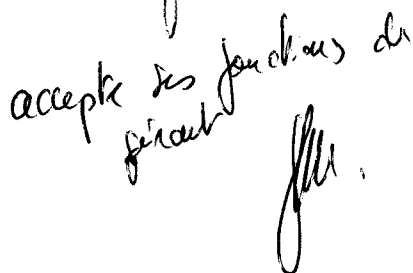 accepte ses fonctions de
gérant